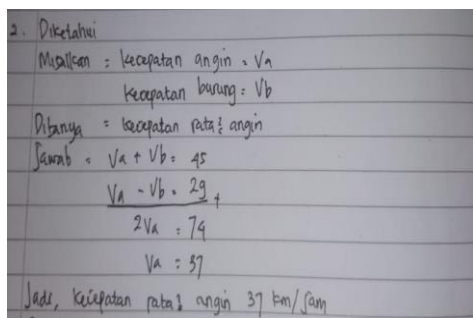 2. Diketahui
Misalkan : kecepatan angin = Va
kecepatan burung = Vb
Ditanya = kecepatan rata² angin
Jawab = Va + Vb = 45
Va - Vb = 29 +
2Va = 74
Va = 37
Jadi, kecepatan rata² angin 37 km/jam